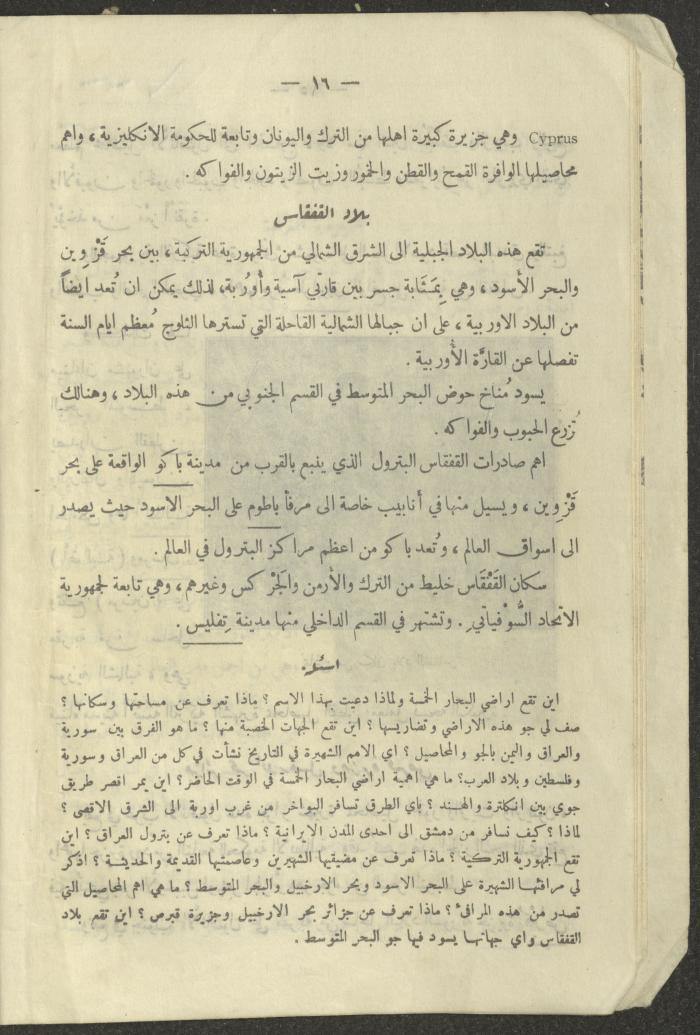 — ١٦ —
Cyprus وهي جزيرة كبيرة اهلها من الترك واليونان وتابعة للحكومة الانكليزية ، واهم
محاصيلها الوافرة القمح والقطن والخمور وزيت الزيتون والفواكه .
بلاد القفقاس
تقع هذه البلاد الجبلية الى الشرق الشمالي من الجمهورية التركية ، بين بحر قَزْوِين
والبحر الأسود ، وهي بِمَثَابة جسر بين قارتي آسية وأوُربة، لذلك يمكن ان تُعد ايضاً
من البلاد الاوربية ، على ان جبالها الشمالية القاحلة التي تسترها الثلوج مُعظم ايام السنة
تفصلها عن القارَّة الأوربية .
يسود مُناخ حوض البحر المتوسط في القسم الجنوبي من هذه البلاد ، وهنالك
تُزرع الحبوب والفواكه .
اهم صادرات القفقاس البترول الذي ينبع بالقرب من مدينة باكو الواقعة على بحر
قَزْوِين ، ويسيل منها في أنابيب خاصة الى مرفأ باطوم على البحر الاسود حيث يصدر
الى اسواق العالم ، وتُعد باكو من اعظم مراكز البترول في العالم .
سكان القَفْقَاس خليط من الترك والأرمن والجَرْكس وغيرهم ، وهي تابعة لجمهورية
الاتحاد السُّوفْياتي . وتشتهر في القسم الداخلي منها مدينة تِفليس .
اسئلة
اين تقع اراضي البحار الخمسة ولماذا دعيت بهذا الاسم ؟ ماذا تعرف عن مساحتها وسكانها ؟
صف لي جو هذه الاراضي وتضاريسها ؟ اين تقع الجهات الخصبة منها ؟ ما هو الفرق بين سورية
والعراق واليمن بالجو والمحاصيل ؟ اي الامم الشهيرة في التاريخ نشأت في كل من العراق وسورية
وفلسطين وبلاد العرب؟ ما هي اهمية اراضي البحار الخمسة في الوقت الحاضر؟ اين يمر اقصر طريق
جوي بين انكلترة والهند ؟ باي الطرق تسافر البواخر من غرب اوربة الى الشرق الاقصى ؟
لماذا ؟ كيف نسافر من دمشق الى احدى المدن الايرانية ؟ ماذا تعرف عن بترول العراق ؟ اين
تقع الجمهورية التركية ؟ ماذا تعرف عن مضيقيها الشهيرين وعاصمتيها القديمة والحديثة ؟ اذكر
لي مرافئها الشهيرة على البحر الاسود وبحر الارخبيل والبحر المتوسط ؟ ما هي اهم المحاصيل التي
تصدر من هذه المرافئ ؟ ماذا تعرف عن جزائر بحر الارخبيل وجزيرة قبرص ؟ اين تقع بلاد
القفقاس واي جهاتها يسود فيها جو البحر المتوسط .